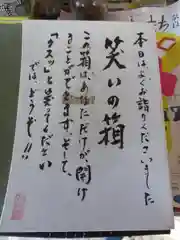 本日はよくお詣りくださいました
笑いの箱
この箱はあなただけが、開け
ることができます。そして、
「クスッ」と笑ってください
では、どうぞ!!